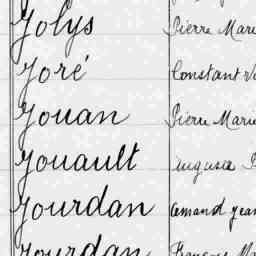 Jolys Pierre Marie
Joré Constant
Jouan Pierre Marie
Jouault
Jourdan Armand Jean
Jourdan François